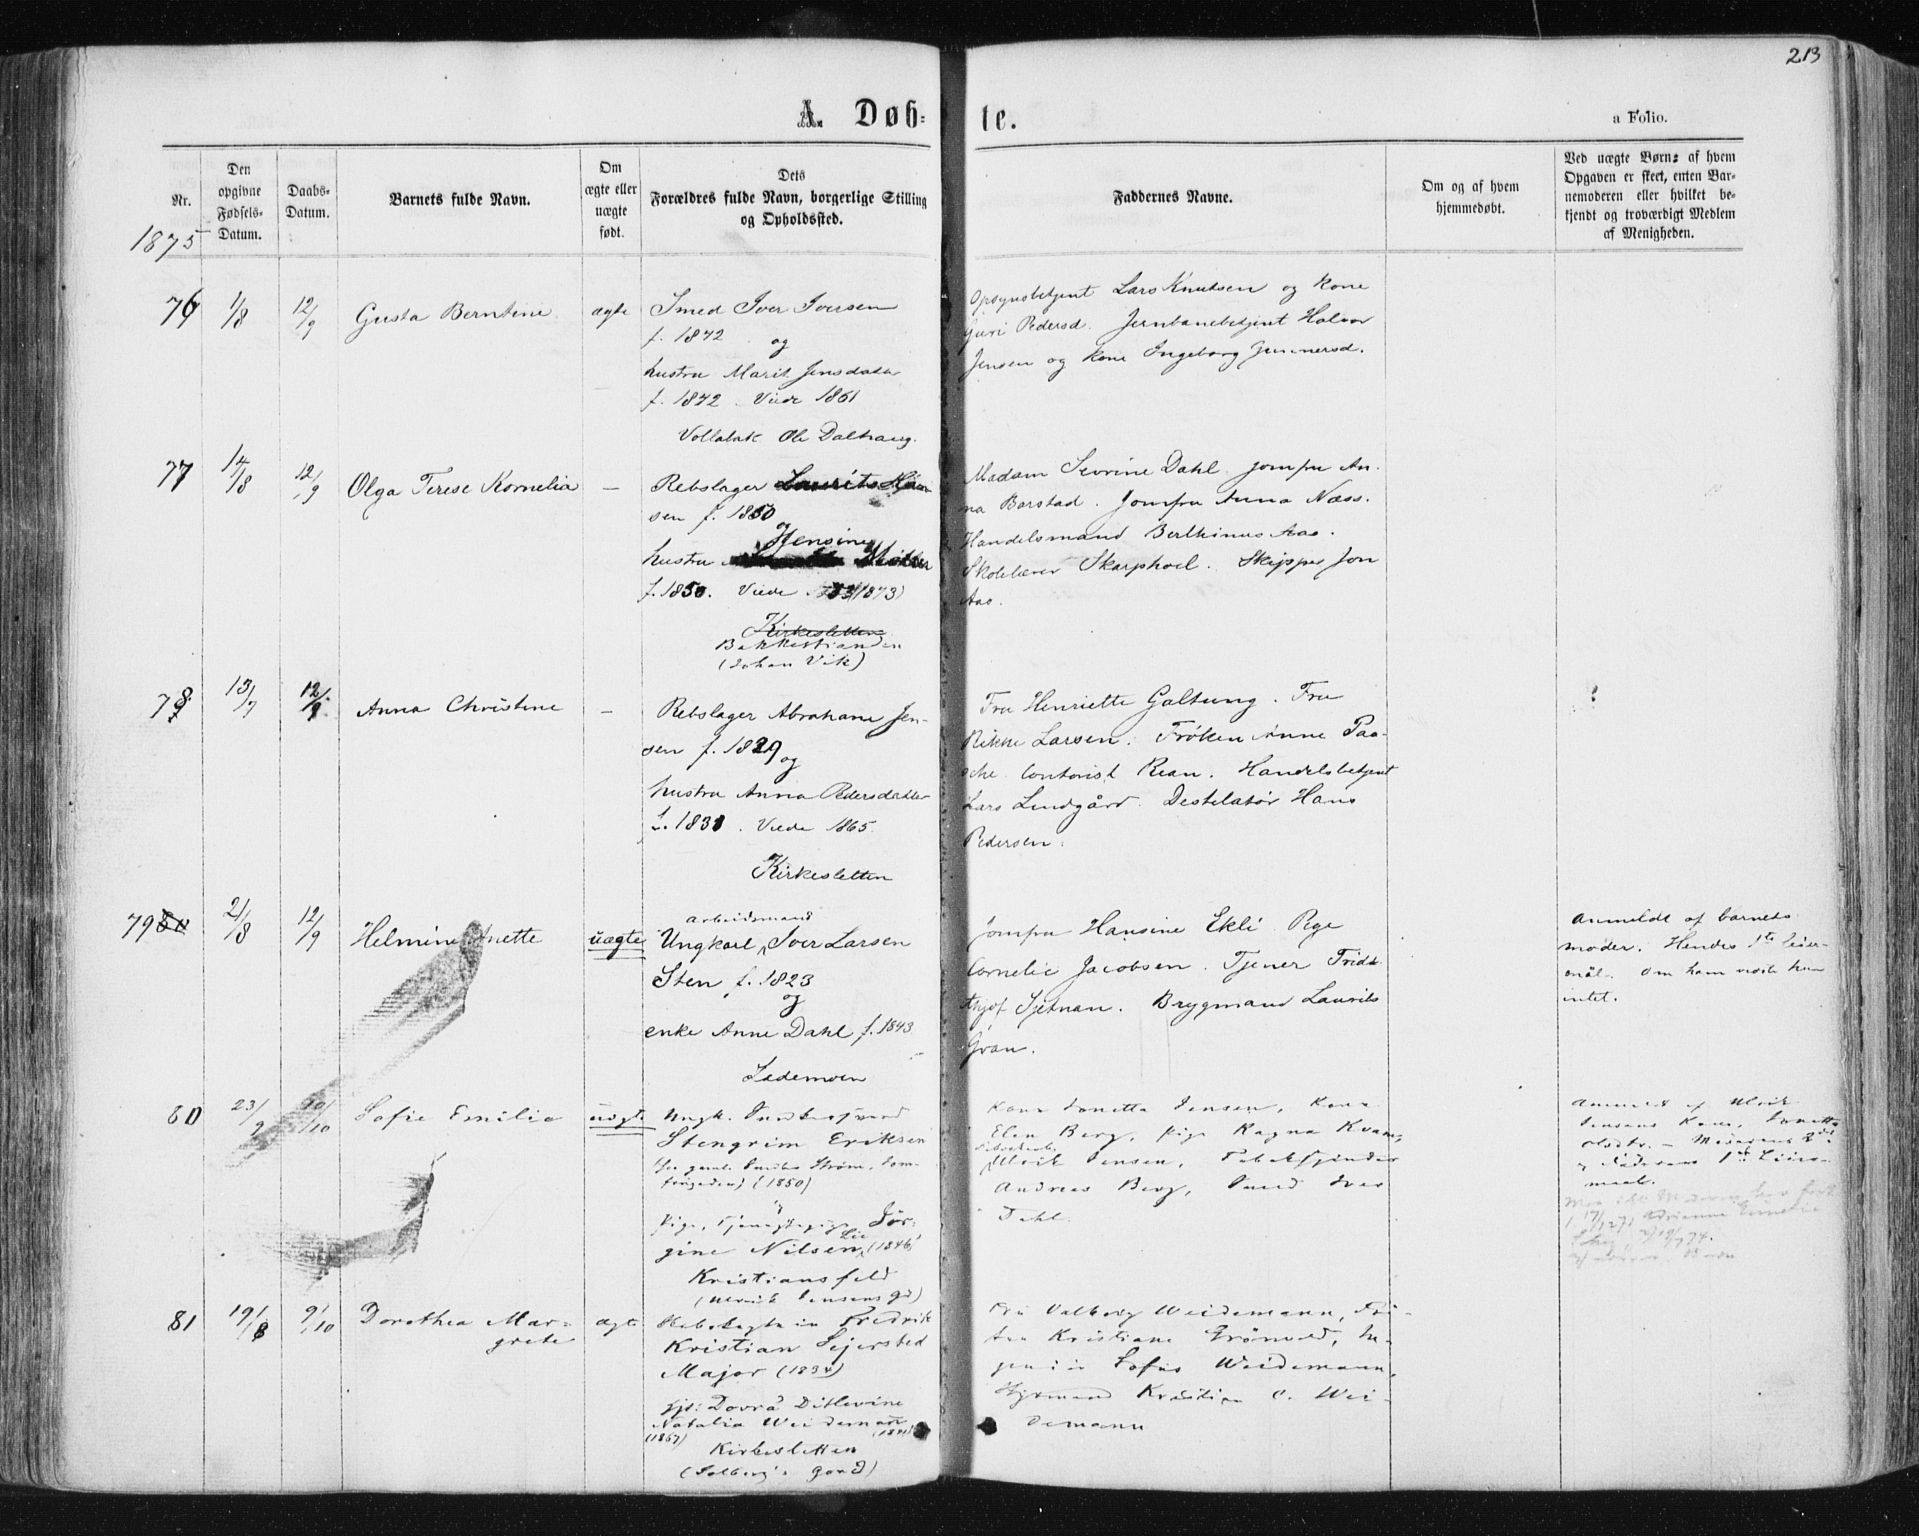 213
A. Døb-
te.
a Folio.
Nr.
Den
opgivne
Fødsels-
Datum.
Daabs-
Datum.
Barnets fulde Navn.
Om
ægte eller
uægte
født.
Dets
Forældres fulde Navn, borgerlige Stilling
og Opholdssted.
Faddernes Navne.
Om og af hvem
hjemmedøbt.
Ved uægte Børn: af hvem
Opgaven er skeet, enten Bar-
nemoderen eller hvilket be-
kjendt og troværdigt Medlem
af Menigheden.
1875
76 1/8 12/9 Gusta Berntine ægte
Smed Iver Iversen
f. 1842
og
hustru Marit Jensdatter
f. 1842. Viede 1861
Vollabak Ole Dalhaug.
Opsynsbetjent Lars Knutsen og kone
Guri Pedersd. Jernbanebetjent Halvor
Jensen og kone Ingeborg Gunnersd.
77 14/8 12/9 Olga Terese Kornelia —
Rebslager Laurits Han-
sen f. 1850
og
Jensine
hustru Möller
f. 1850. Viede (1873)
Kirkesletten
Bakkestranden
(Johan Vik)
Madam Sevrine Dahl. Jomfru An-
na Barstad. Jomfru Anna Næss.
Handelsmand Berthinus Aas.
Skolelærer Skarphoel. Skipper Jon
Aas.
78 13/7 12/9 Anna Christine —
Rebslager Abraham Jen-
sen f. 1829
og
hustru Anna Pedersdatter
f. 1831. Viede 1865.
Kirkesletten
Fru Henriette Galtung. Fru
Rikke Larsen. Frøken Anne Paa-
sche. Contorist Rian. Handelsbetjent
Lars Lindgård. Destilatør Hans
Pedersen.
79 80 21/8 12/9 Helmine Anette uægte
arbeidsmand
Ungkarl Iver Larsen
Sten f. 1823
og
enke Anne Dahl f. 1843
Lademoen
Jomfru Hansine Ekli. Pige
Cornelie Jacobsen. Tjener Fridt-
thjof Sjetnan. Brygmand Laurits
Gran.
Anmeldt af barnets
moder. Hendes 1te leier-
mål. Om ham vidste hun
intet.
80 23/9 10/10 Sofie Emilie uægte
Ungk.
Stengrim Eriksen
(1850)
og
Pige, Tjenestepige Jör-
gine Nilsen Lie (1846)
Kristiansfeld
(Ulrik Jensens gd)
Kone Jonetta Jensen, Kone
Elen Berg, pige Ragna Kvam,
Ulrik Jensen, Tobakspinder
Andreas Berg, Smed Iver
Dahl.
Anmeldt af Ulrik
Jensens Kone, Jonetta
Olsdtr. —
og Faderens 1ste Leier-
maal.
81 19/8 9/10 Dorothea Mar-
grete ægte
Fredrik
Kristian Sejersted
Major (1834)
Dovra Ditlevine
Natalia Weidemann
(1867) (1841)
Kirkesletten
(Solberg's gaard)
Fru Valborg Weidemann,
Kristiane Grönvold, In-
geniör Sofus Weidemann,
Kristian C. Wei-
demann